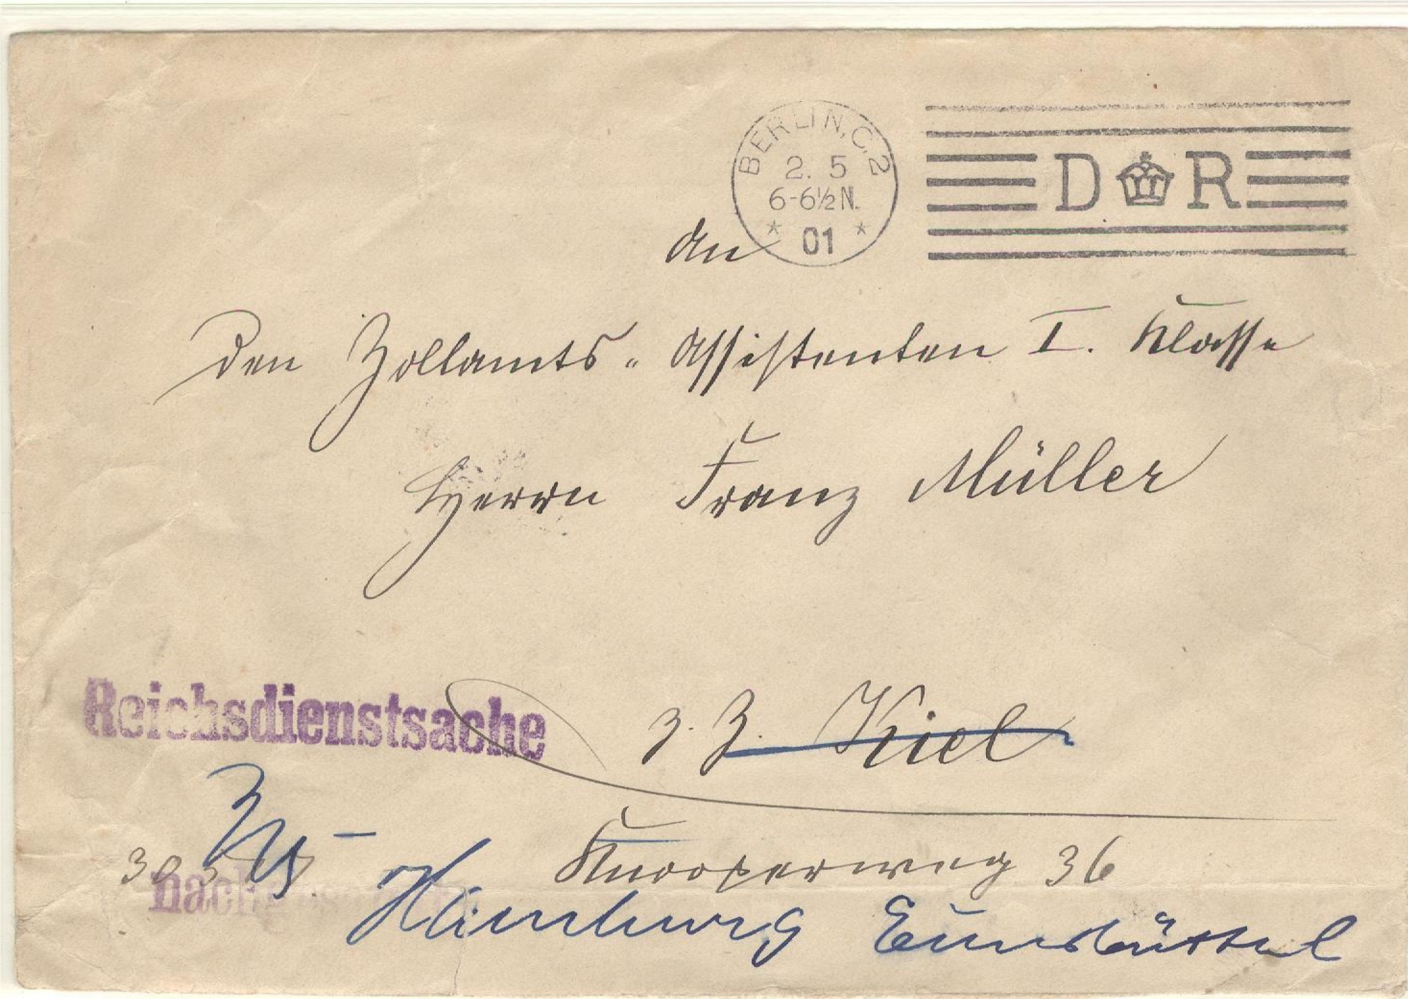 BERLIN, C. 2
2. 5
6-6½N.
* 01 *
D R
An
den Zollamts-Assistenten I. Klasse
Herrn Franz Müller
Reichsdienstsache
z. Z. Kiel
Knooperweg 36
Hamburg Eimsbüttel